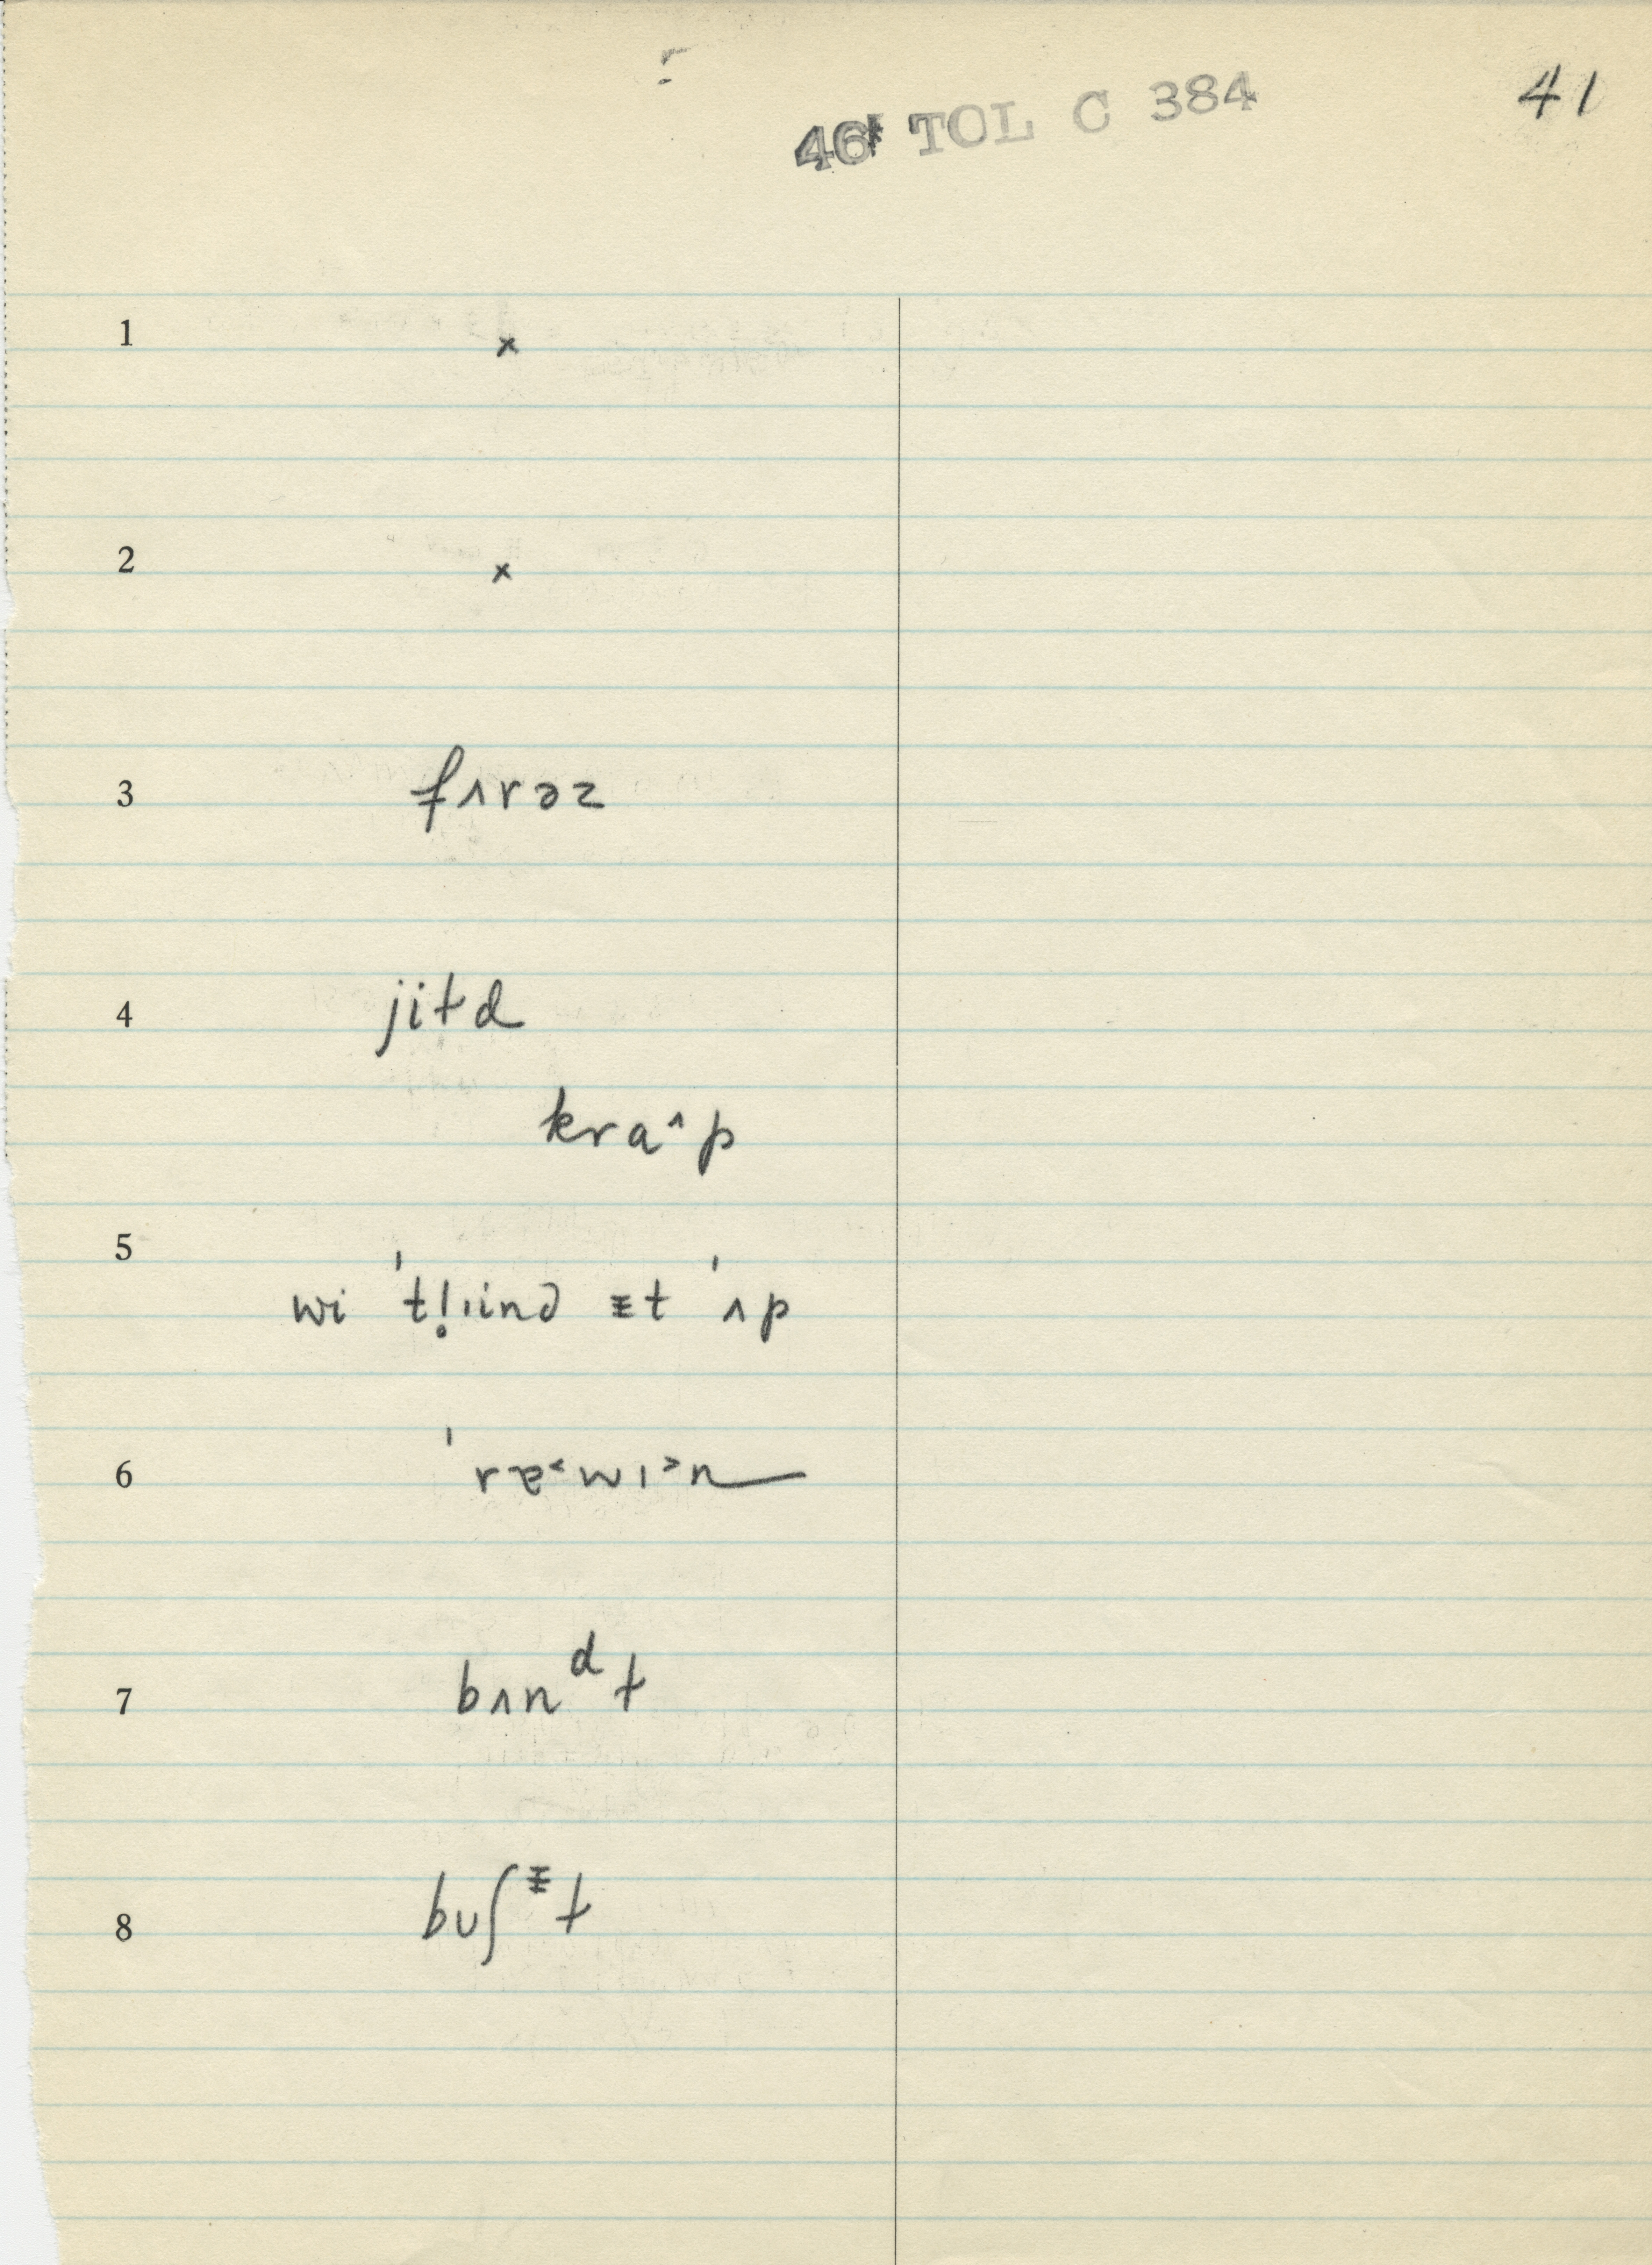 46 TOL C 384
41
1 x
2 x
3 fʌrəz
4 jiɫd
kraˆp
5 wi ˈtl̩ˌind ᵻt ˈʌp
6 ˈræ˂wɪ˃n
7 bʌnᵈt
8 buʃᵻt